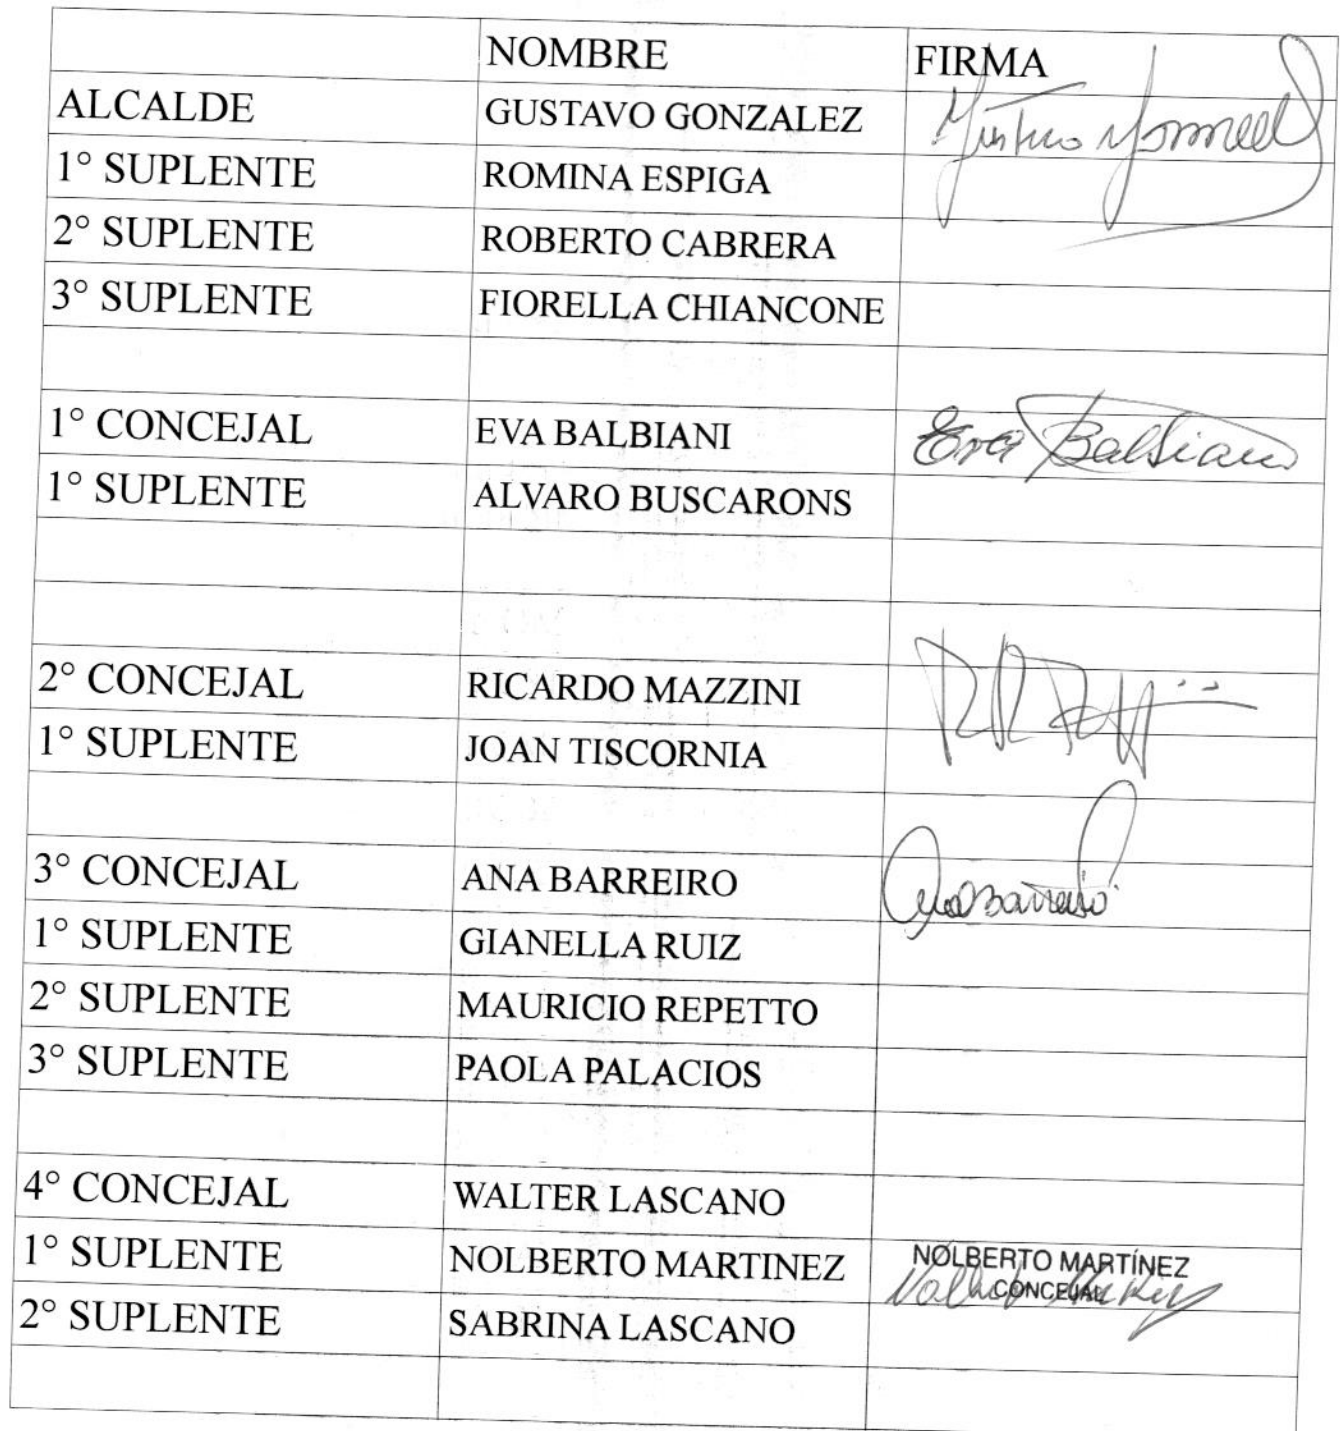 NOMBRE FIRMA
ALCALDE GUSTAVO GONZALEZ Gustavo Gonzalez
1° SUPLENTE ROMINA ESPIGA
2° SUPLENTE ROBERTO CABRERA
3° SUPLENTE FIORELLA CHIANCONE
1° CONCEJAL EVA BALBIANI Eva Balbiani
1° SUPLENTE ALVARO BUSCARONS
2° CONCEJAL RICARDO MAZZINI
1° SUPLENTE JOAN TISCORNIA
3° CONCEJAL ANA BARREIRO Ana Barreiro
1° SUPLENTE GIANELLA RUIZ
2° SUPLENTE MAURICIO REPETTO
3° SUPLENTE PAOLA PALACIOS
4° CONCEJAL WALTER LASCANO
1° SUPLENTE NOLBERTO MARTINEZ NOLBERTO MARTÍNEZ
CONCEJAL
2° SUPLENTE SABRINA LASCANO